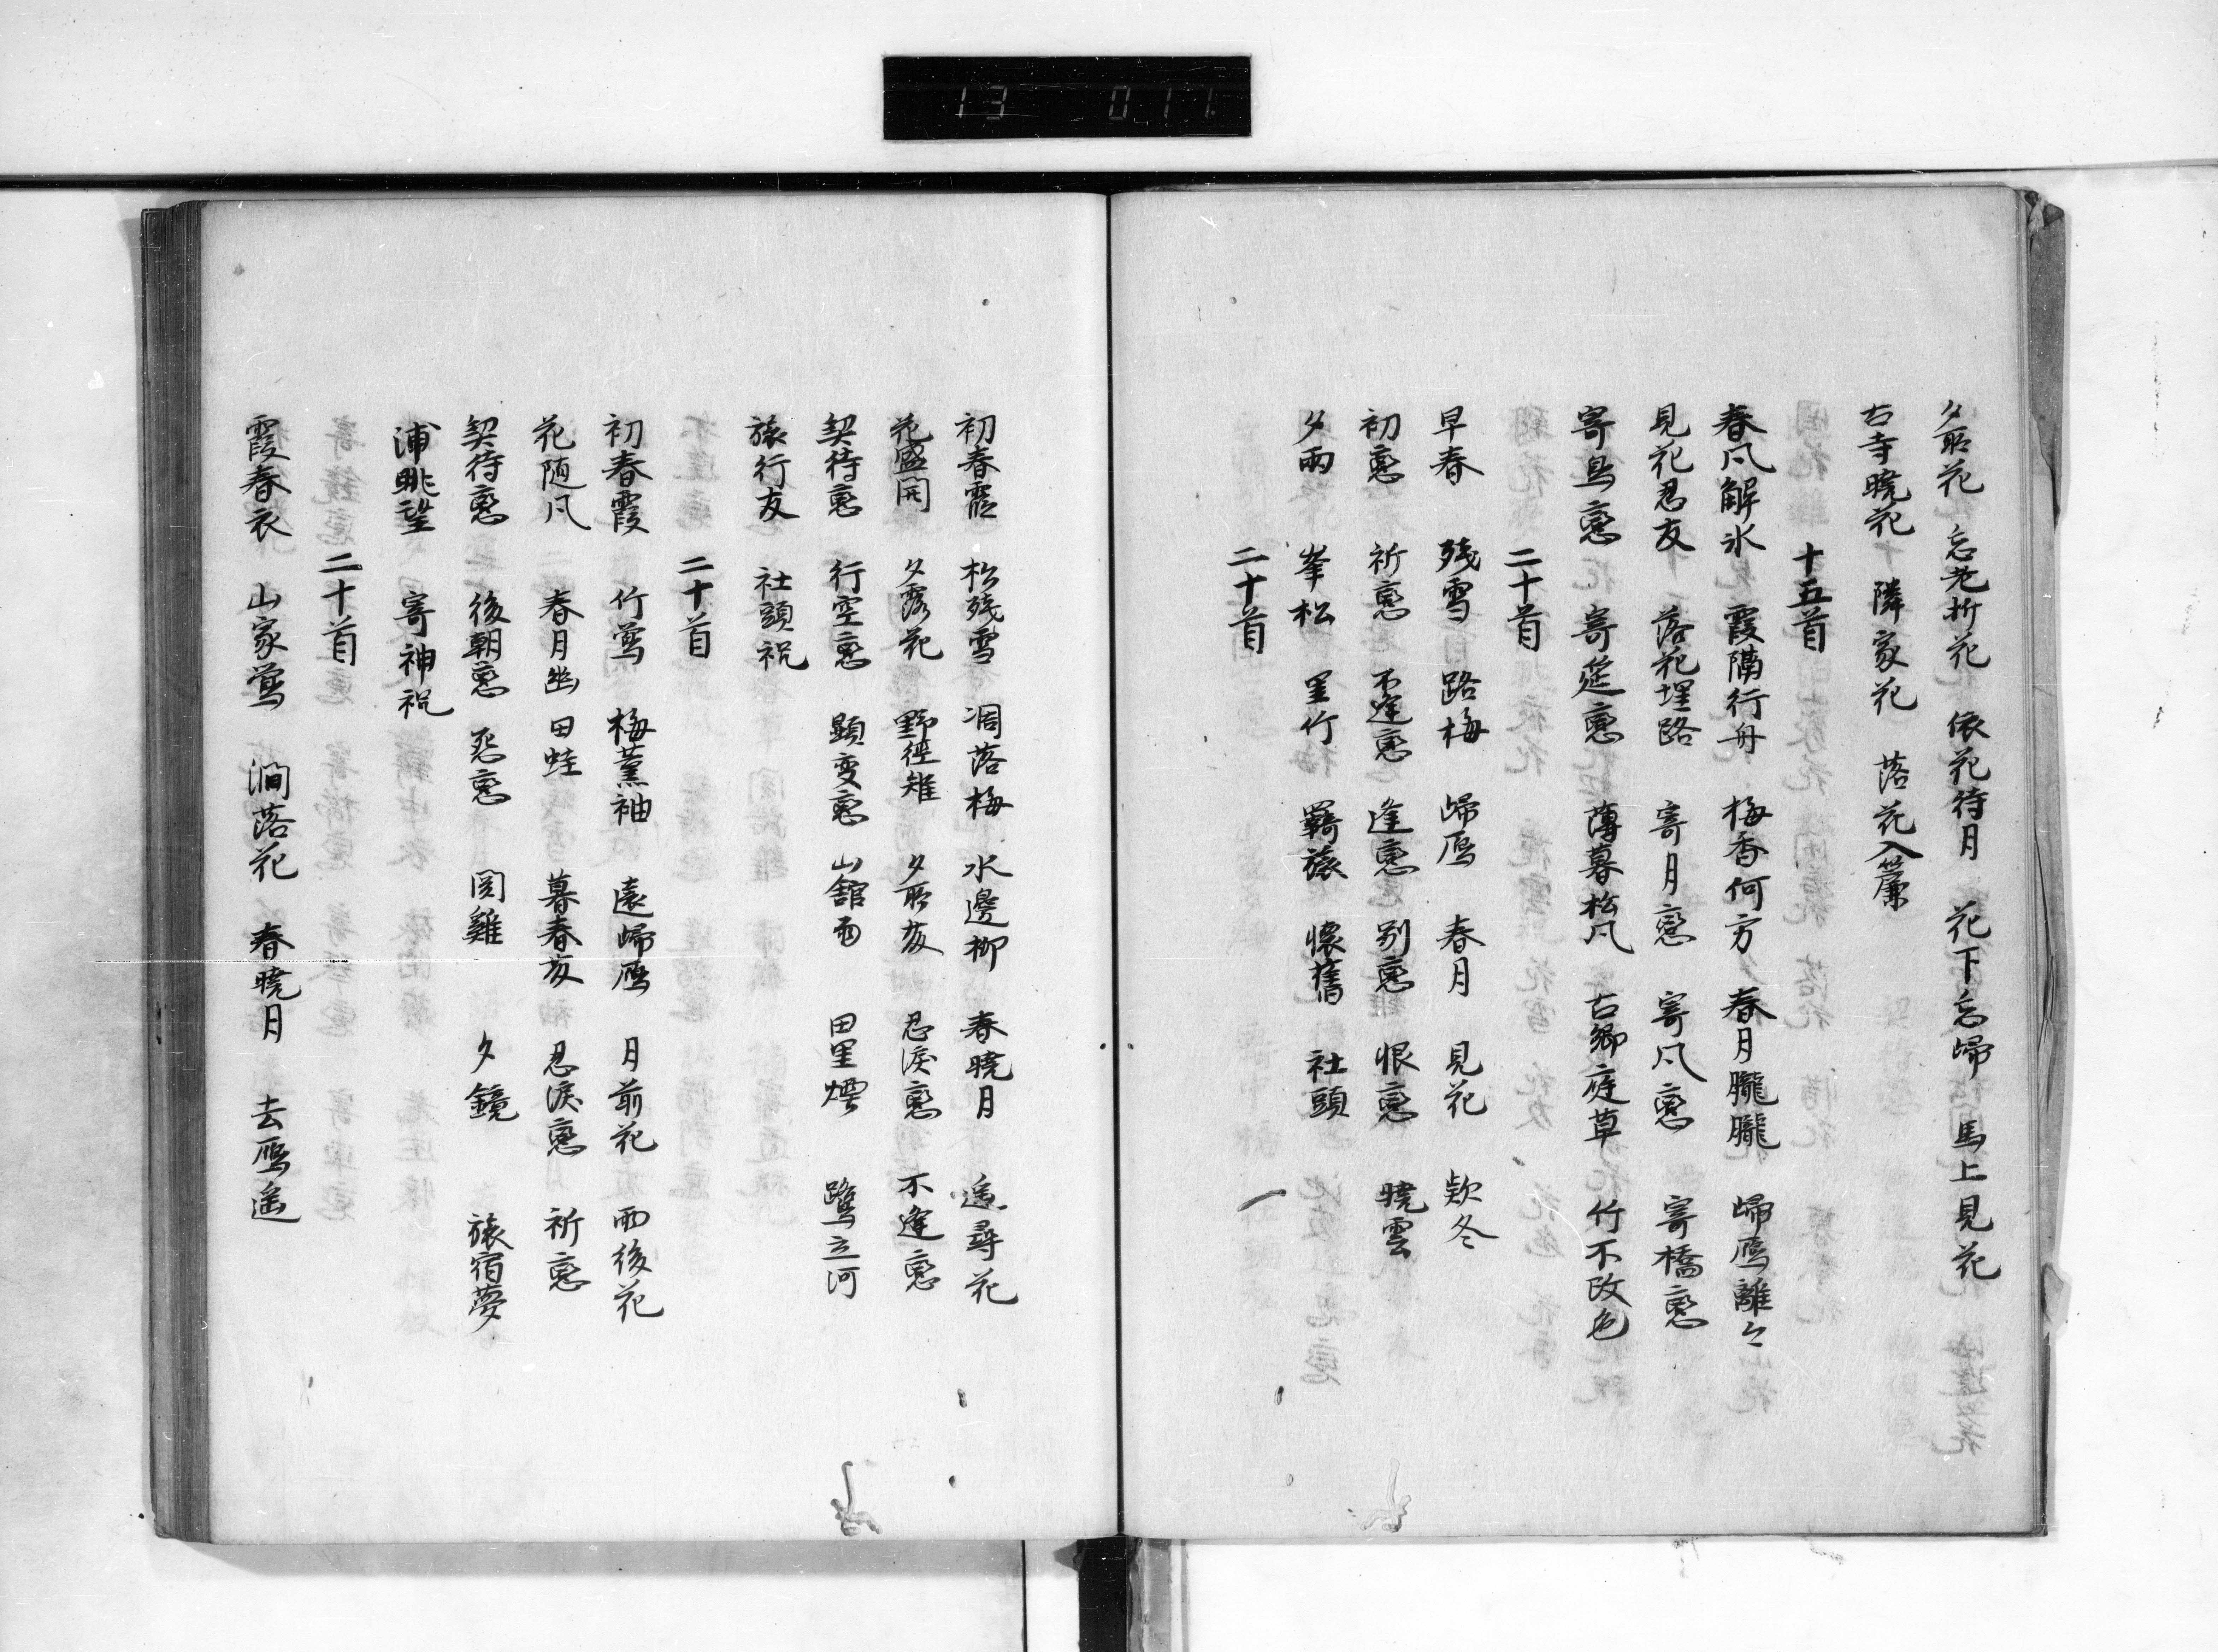 13 011
夕見花 忘老折花 依花待月 花下忘帰 馬上見花
古寺暁花 隣家花 落花入簾
十五首
春風解氷 霞隔行舟 梅香何方 春月朧朧 帰雁離々
見花忍友 落花埋路 寄月恋 寄風恋 寄橋恋
寄鳥恋 寄筵恋 薄暮松風 古郷庭草 竹不改色
二十首
早春 残雪 路梅 帰雁 春月 見花 欵冬
初恋 祈恋 不逢恋 逢恋 別恋 恨恋 暁雲
夕雨 峯松 里竹 羇旅 懐舊 社頭
二十首
初春霞 松残雪 澗落梅 水邊柳 春暁月 遙尋花
花盛開 夕露花 野径雉 忍涙恋 不逢恋
契待恋 行空恋 顕変恋 山舘雨 田里煙 鷺立河
旅行友 社頭祝
二十首
初春霞 竹鶯 梅薫袖 遠帰雁 月前花 雨後花
花随風 春月幽 田蛙 暮春友 忍涙恋 祈恋
契待恋 後朝恋 恐恋 関鶏 夕鏡 旅宿夢
浦眺望 寄神祝
二十首
霞春衣 山家鶯 澗落花 春暁月 去雁遥